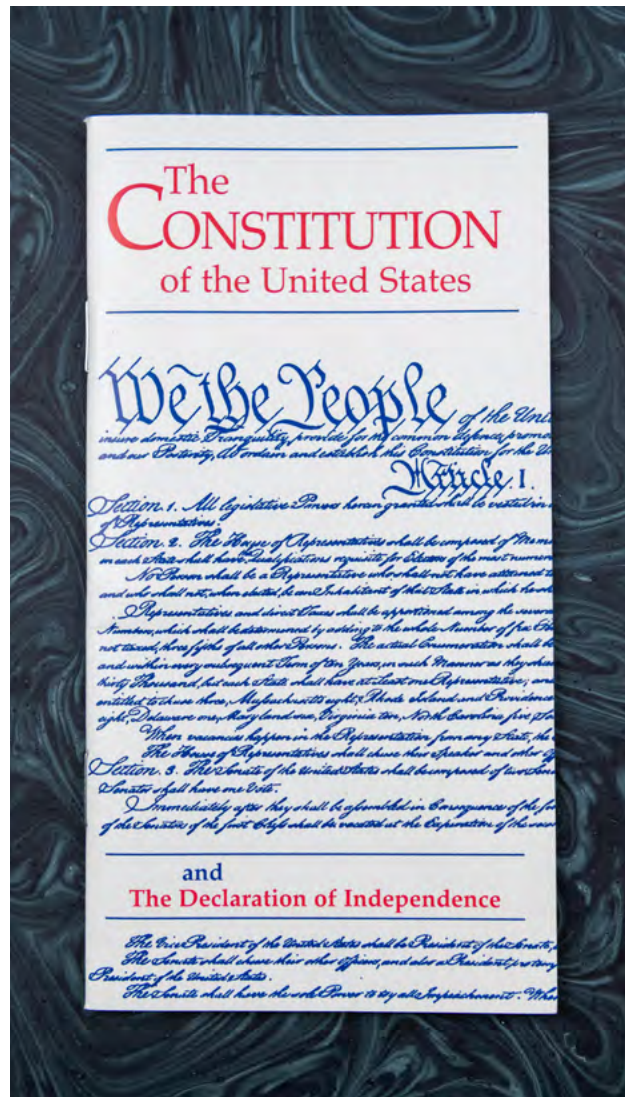 The
CONSTITUTION
of the United States
We the People of the Unit
insure domestic Tranquility, provide for the common defence, promo
and our Posterity, do ordain and establish this Constitution for the U
Article I.
Section. 1. All legislative Powers herein granted shall be vested in
of Representatives.
Section. 2. The House of Representatives shall be composed of Mem
in each State shall have Qualifications requisite for Electors of the most numero
No Person shall be a Representative who shall not have attained t
and who shall not, when elected, be an Inhabitant of that State in which he sh
Representatives and direct Taxes shall be apportioned among the severa
Numbers, which shall be determined by adding to the whole Number of free
not taxed, three fifths of all other Persons. The actual Enumeration shall be
and within every subsequent Term of ten Years, in such Manner as they shal
thirty Thousand, but each State shall have at Least one Representative; and
entitled to chuse three, Massachusetts eight, Rhode Island and Providence
eight, Delaware one, Maryland six, Virginia ten, North Carolina five, So
When vacancies happen in the Representation from any State, the
The House of Representatives shall chuse their Speaker and other Off
Section. 3. The Senate of the United States shall be composed of two Sena
Senator shall have one Vote.
Immediately after they shall be assembled in Consequence of the fir
of the Senators of the first Class shall be vacated at the Expiration of the seco
and
The Declaration of Independence
The Vice President of the United States shall be President of the Senate,
The Senate shall chuse their other Officers, and also a President pro temp
President of the United States.
The Senate shall have the sole Power to try all Impeachments. When